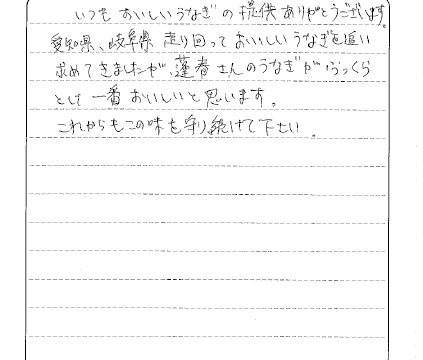 いつも おいしいうなぎの提供ありがとうございます。
愛知県、岐阜県 走り回って おいしいうなぎを追い
求めてきましたが、蓬春さんのうなぎが ふっくら
として 一番 おいしいと思います。
これからもこの味を守り続けて下さい。